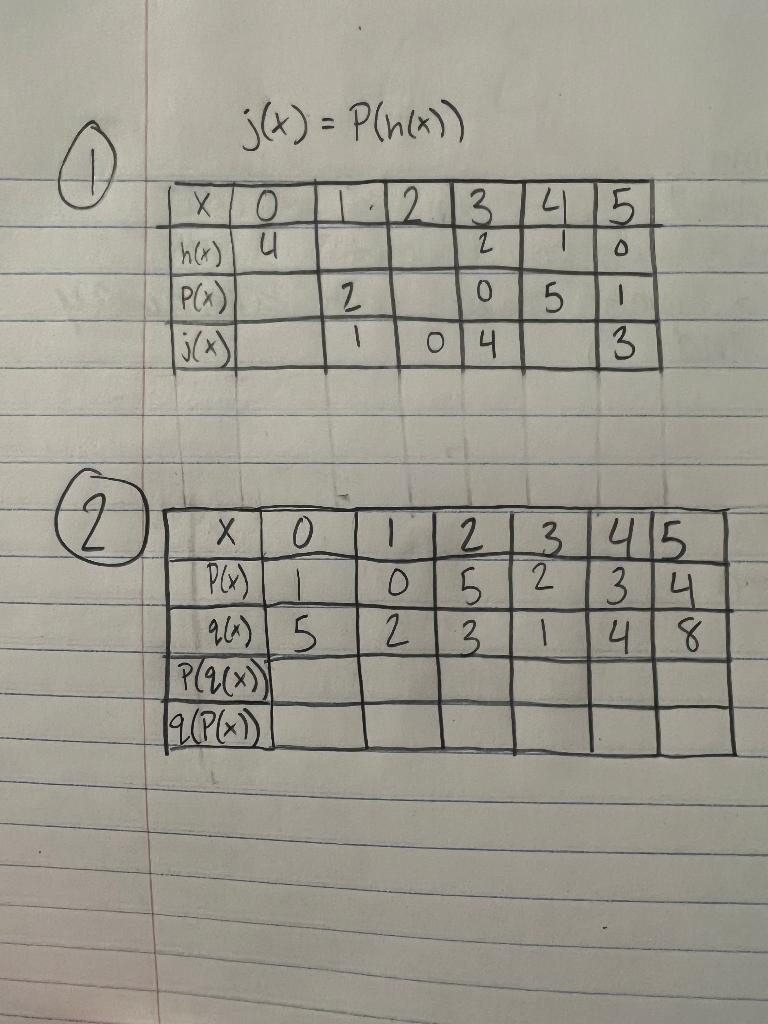 j(x) = P(h(x))
1
x 0 1 2 3 4 5
h(x) 4 2 1 0
P(x) 2 0 5 1
j(x) 1 0 4 3
2
x 0 1 2 3 4 5
P(x) 1 0 5 2 3 4
q(x) 5 2 3 1 4 8
P(q(x))
q(P(x))